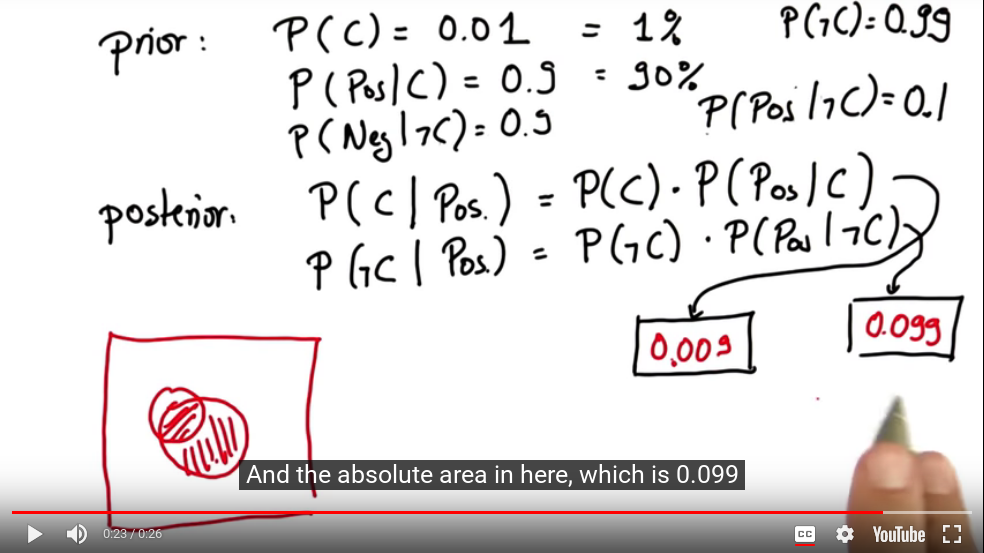 prior: P(C) = 0.01 = 1% P(¬C)=0.99
P(Pos|C) = 0.9 = 90%
P(Pos|¬C)=0.1
P(Neg|¬C)= 0.9
posterior: P(C|Pos.) = P(C)·P(Pos|C)
P(¬C|Pos.) = P(¬C)·P(Pos|¬C)
0.009 0.099
And the absolute area in here, which is 0.099
0:23 / 0:26 CC YouTube